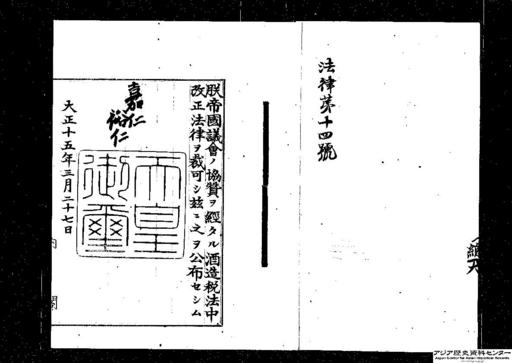 法律第十四號
朕帝國議會ノ協賛ヲ經タル酒造税法中
改正法律ヲ裁可シ茲ニ之ヲ公布セシム
嘉仁
裕仁
天皇
御璽
大正十五年三月二十七日
内閣
アジア歴史資料センター
Japan Center for Asian Historical Records